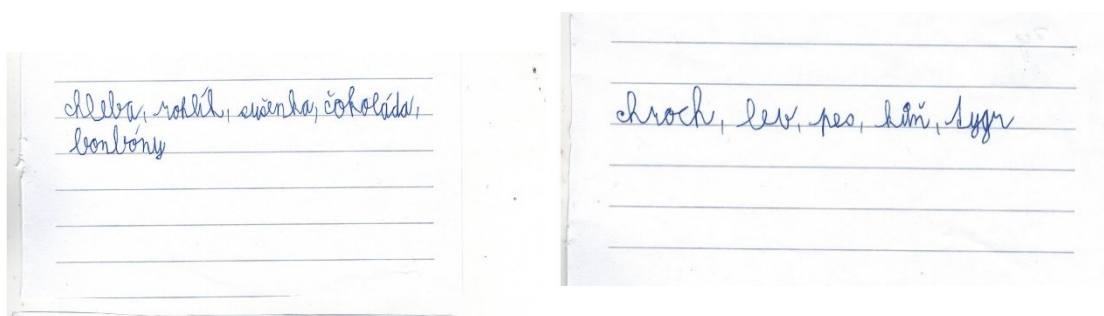 chleba, rohlík, sušenka, čokoláda,
bonbóny
chroch, lev, pes, kůň, tygr